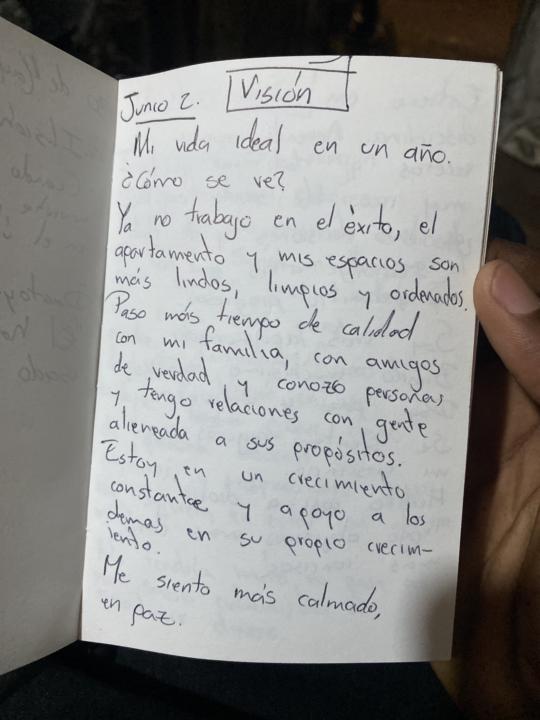 Junio 2. Visión
Mi vida ideal en un año.
¿Cómo se ve?
Ya no trabajo en el èxito, el
apartamento y mis espacios son
más lindos, limpios y ordenados.
Paso más tiempo de calidad
con mi familia, con amigos
de verdad y conozo personas
y tengo relaciones con gente
alieneada a sus propósitos.
Estoy en un crecimiento
constantce y apoyo a los
demas en su propio crecim-
iento.
Me siento más calmado,
en paz.